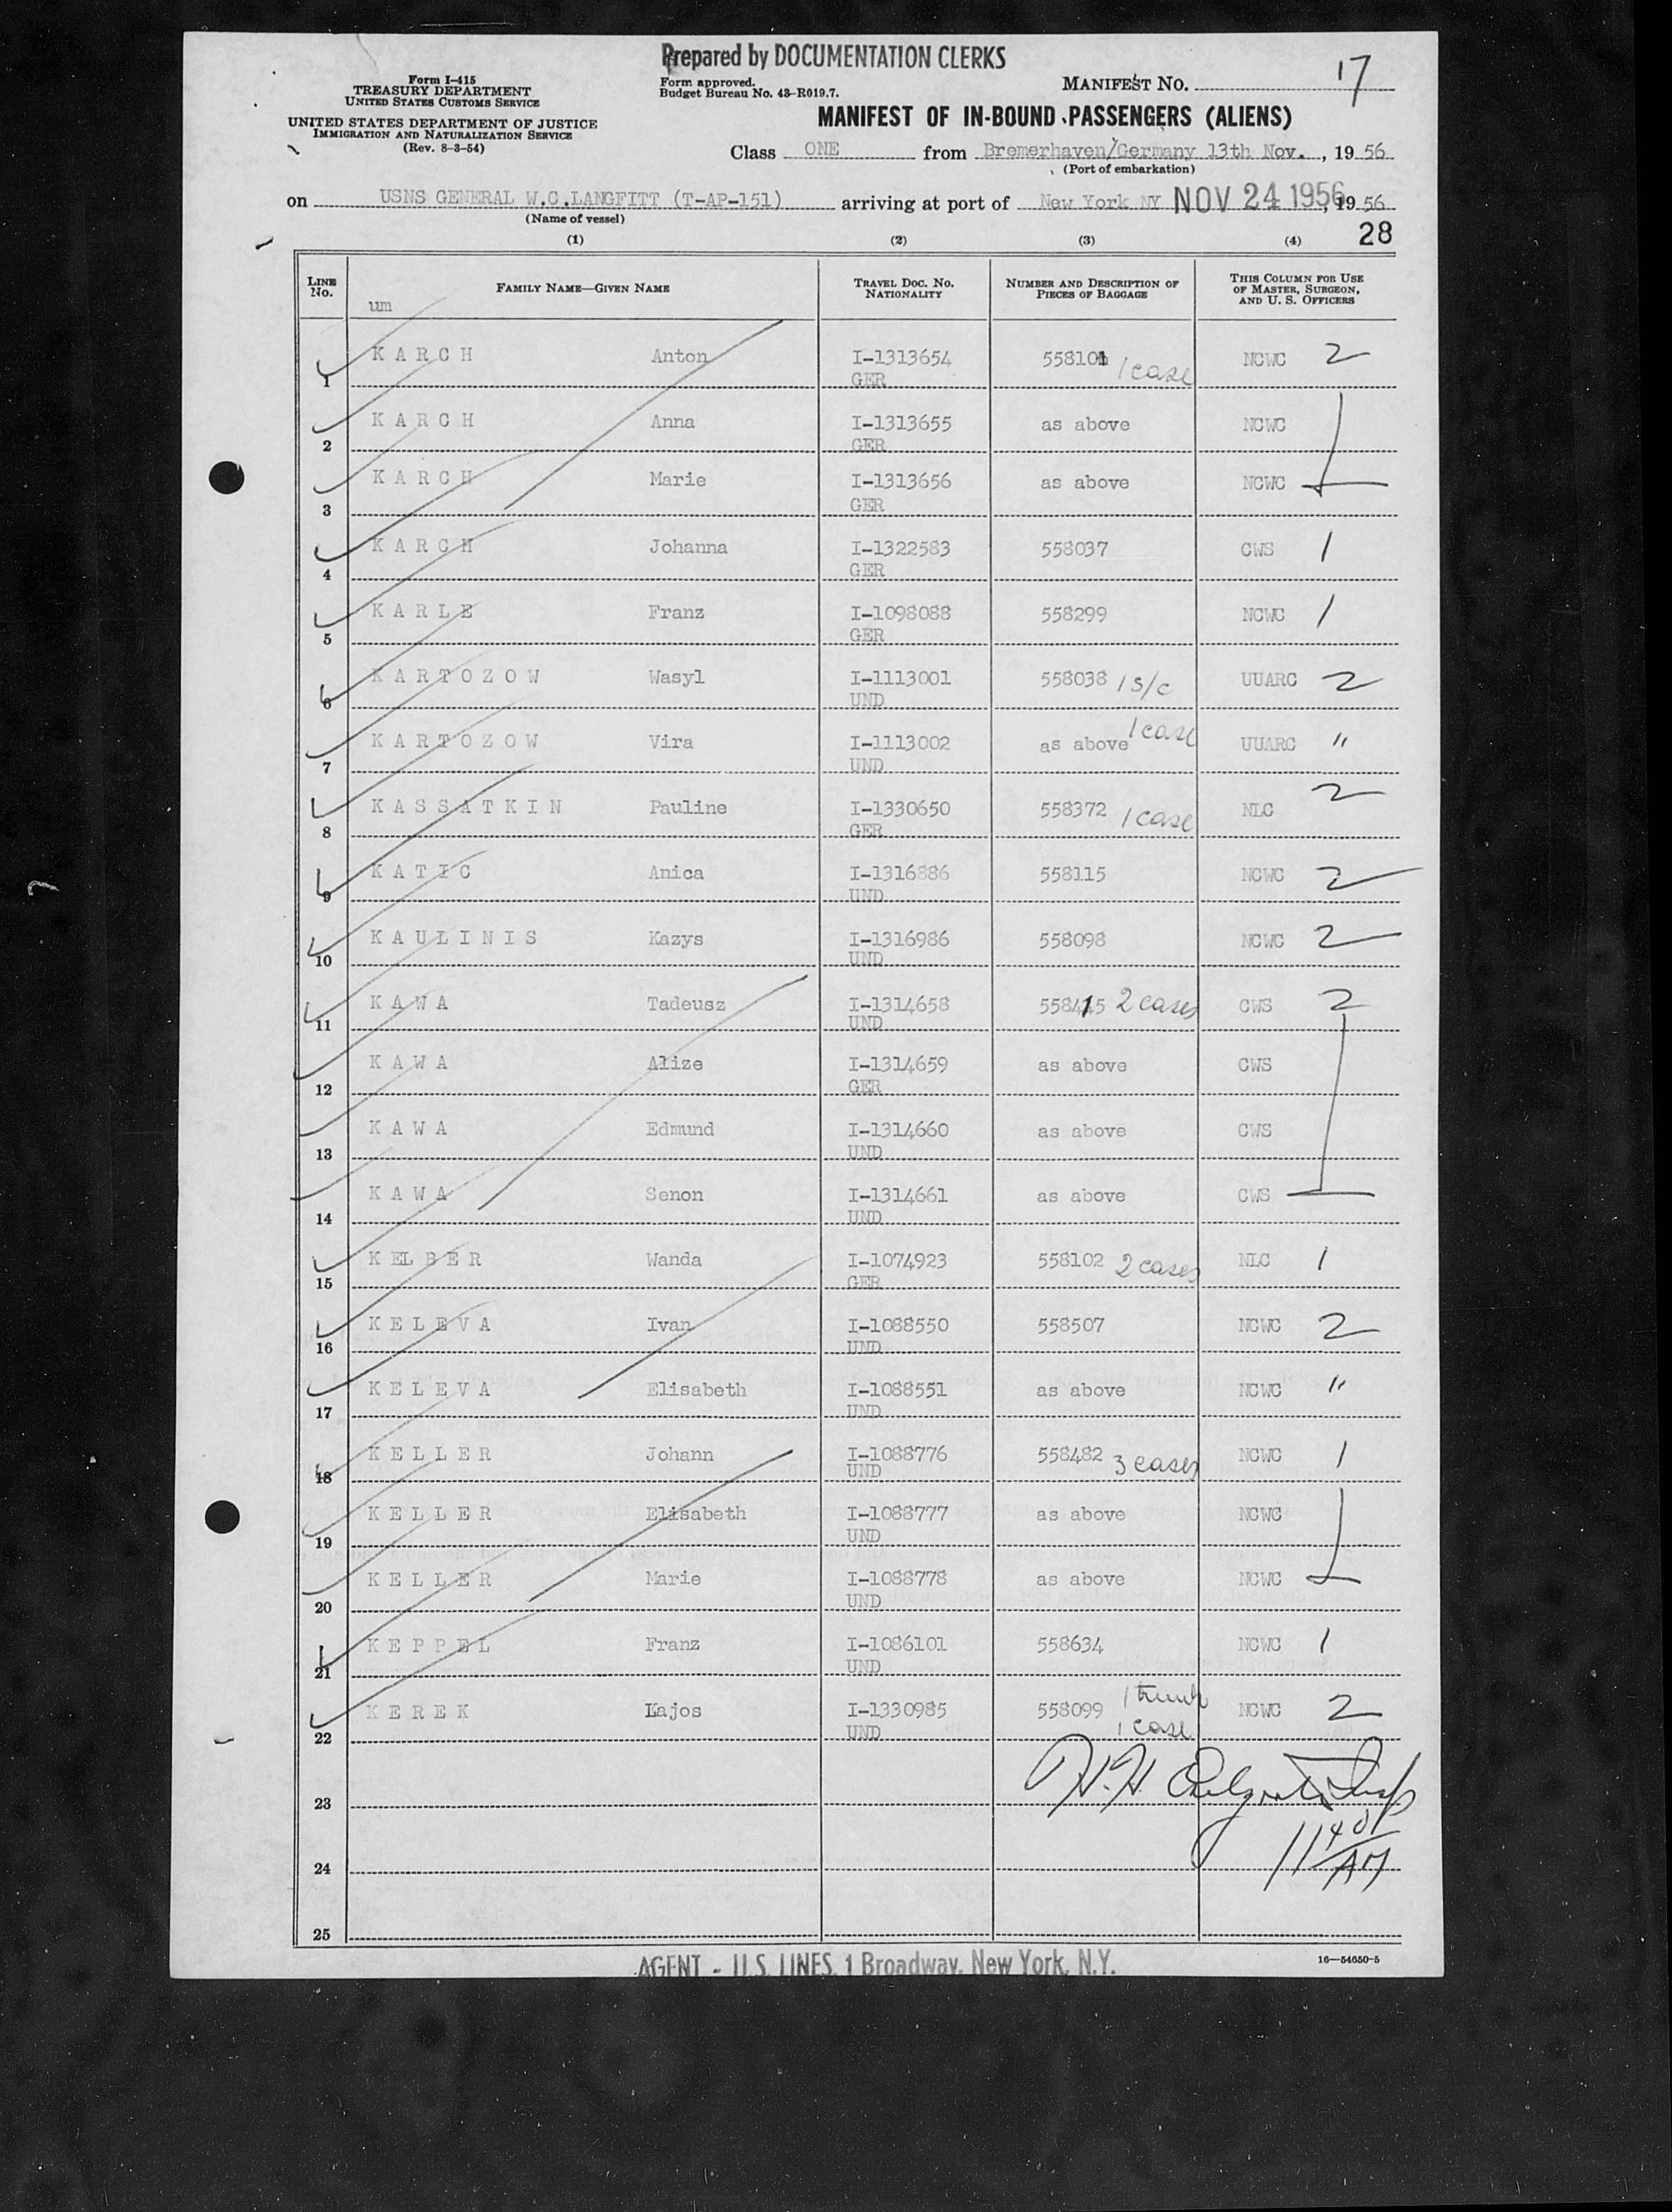 Prepared by DOCUMENTATION CLERKS
Form I-415
TREASURY DEPARTMENT
UNITED STATES CUSTOMS SERVICE
UNITED STATES DEPARTMENT OF JUSTICE
IMMIGRATION AND NATURALIZATION SERVICE
(Rev. 8-3-54)
Form approved.
Budget Bureau No. 43-R019.7.
MANIFEST No. 17
MANIFEST OF IN-BOUND PASSENGERS (ALIENS)
Class ONE from Bremerhaven/Germany 13th Nov. , 19 56
(Port of embarkation)
on USNS GENERAL W.C.LANGFITT (T-AP-151) arriving at port of New York NY NOV 24 1956, 19 56
(Name of vessel)
(1) (2) (3) (4) 28
LINE No. FAMILY NAME—GIVEN NAME TRAVEL DOC. NO. NATIONALITY NUMBER AND DESCRIPTION OF PIECES OF BAGGAGE THIS COLUMN FOR USE OF MASTER, SURGEON, AND U. S. OFFICERS
um
1 KARCH Anton I-1313654 GER 558101 1 case NCWC 2
2 KARCH Anna I-1313655 GER as above NCWC
3 KARCH Marie I-1313656 GER as above NCWC
4 KARCH Johanna I-1322583 GER 558037 CWS 1
5 KARLE Franz I-1098088 GER 558299 NCWC 1
6 KARTOZOW Wasyl I-1113001 UND 558038 1 s/c UUARC 2
7 KARTOZOW Vira I-1113002 UND as above 1 case UUARC "
8 KASSATKIN Pauline I-1330650 GER 558372 1 case NLC 2
9 KATIC Anica I-1316886 UND 558115 NCWC 2
10 KAULINIS Kazys I-1316986 UND 558098 NCWC 2
11 KAWA Tadeusz I-1314658 UND 558415 2 cases CWS 2
12 KAWA Alize I-1314659 GER as above CWS
13 KAWA Edmund I-1314660 UND as above CWS
14 KAWA Senon I-1314661 UND as above CWS
15 KELBER Wanda I-1074923 GER 558102 2 cases NLC 1
16 KELEVA Ivan I-1088550 UND 558507 NCWC 2
17 KELEVA Elisabeth I-1088551 UND as above NCWC "
18 KELLER Johann I-1088776 UND 558482 3 cases NCWC 1
19 KELLER Elisabeth I-1088777 UND as above NCWC
20 KELLER Marie I-1088778 UND as above NCWC
21 KEPPEL Franz I-1086101 UND 558634 NCWC 1
22 KEREK Lajos I-1330985 UND 558099 1 trunk 1 case NCWC 2
23 H.H.
24 11 40 AM
25
AGENT - U.S. LINES, 1 Broadway, New York, N.Y.
16—54650-5